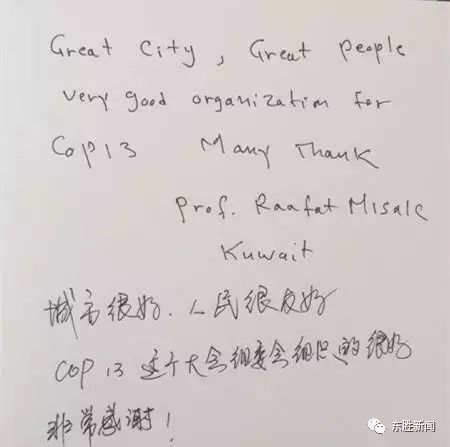 Great City, Great people
very good organization for
Cop13 Many Thank
Prof. Raafat Misak
Kuwait
城市很好. 人民很友好
COP 13 这个大会组委会组织的很好
非常感谢!
东胜新闻